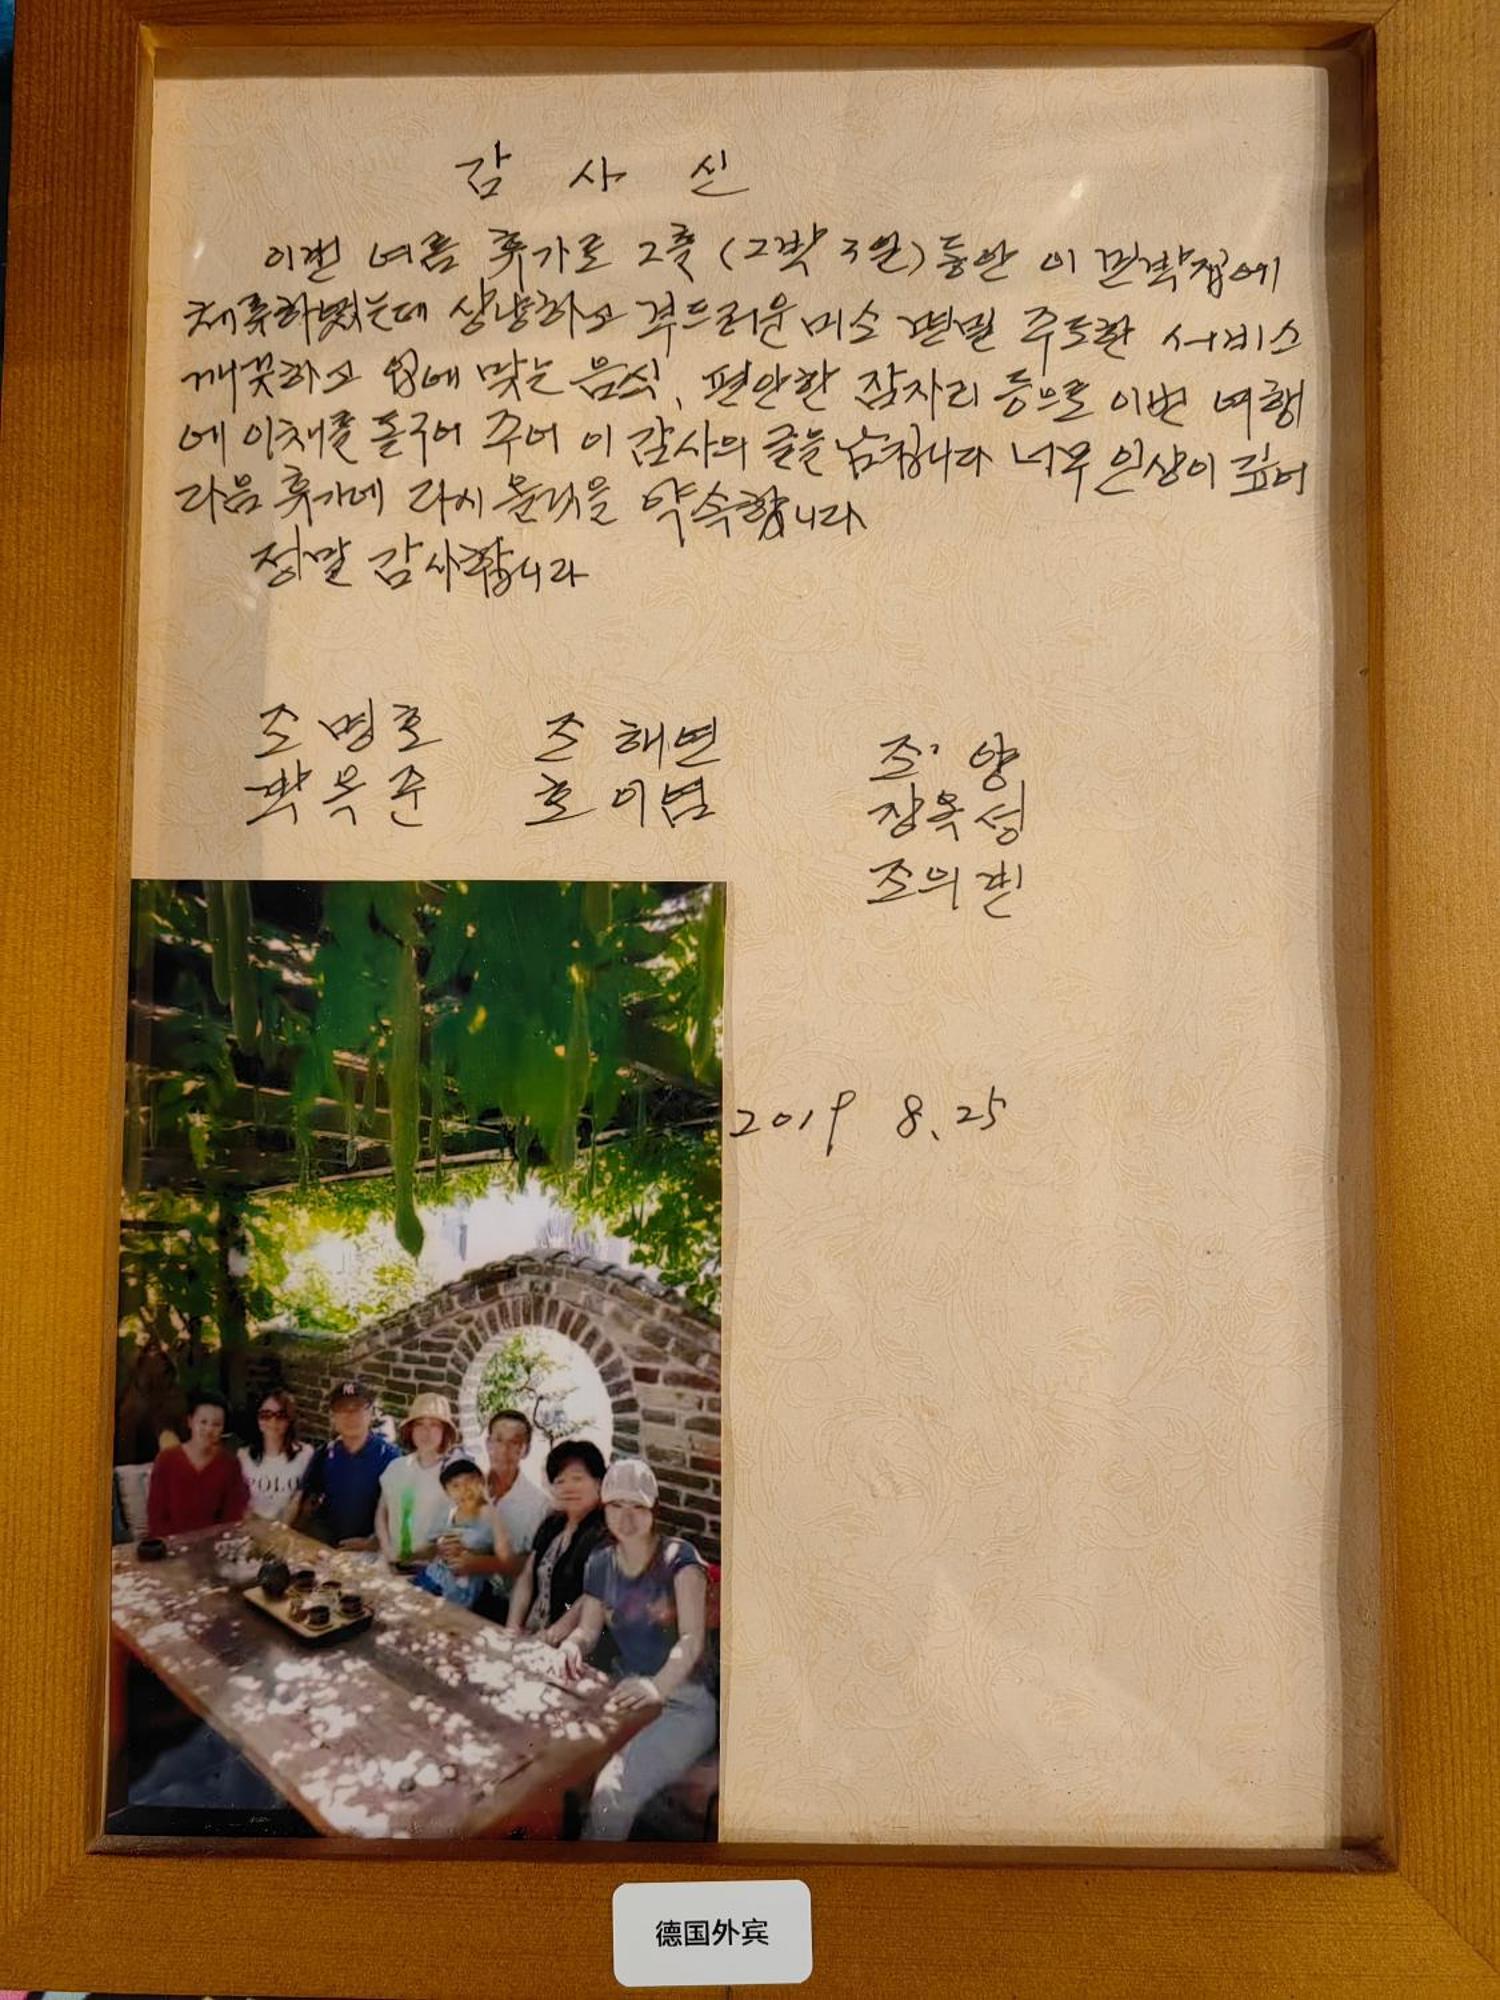 감 사 신
이번 여름 휴가로 2쭉 (2박 3일) 동안 이 민박집에
체류하였는데 상냥하고 부드러운 미소 면밀 주도한 서비스
깨끗하고 입에 맞는 음식, 편안한 잠자리 등으로 이번 여행
에 이채를 돋구어 주어 이 감사의 글을 남깁니다 너무 인상이 깊어
다음 휴가에 다시 올것을 약속합니다
정말 감사합니다
조 명호 조 해연 조 양
박 옥 준 호 이범 장옥성
조의린
2019 8.25
POLO
德国外宾